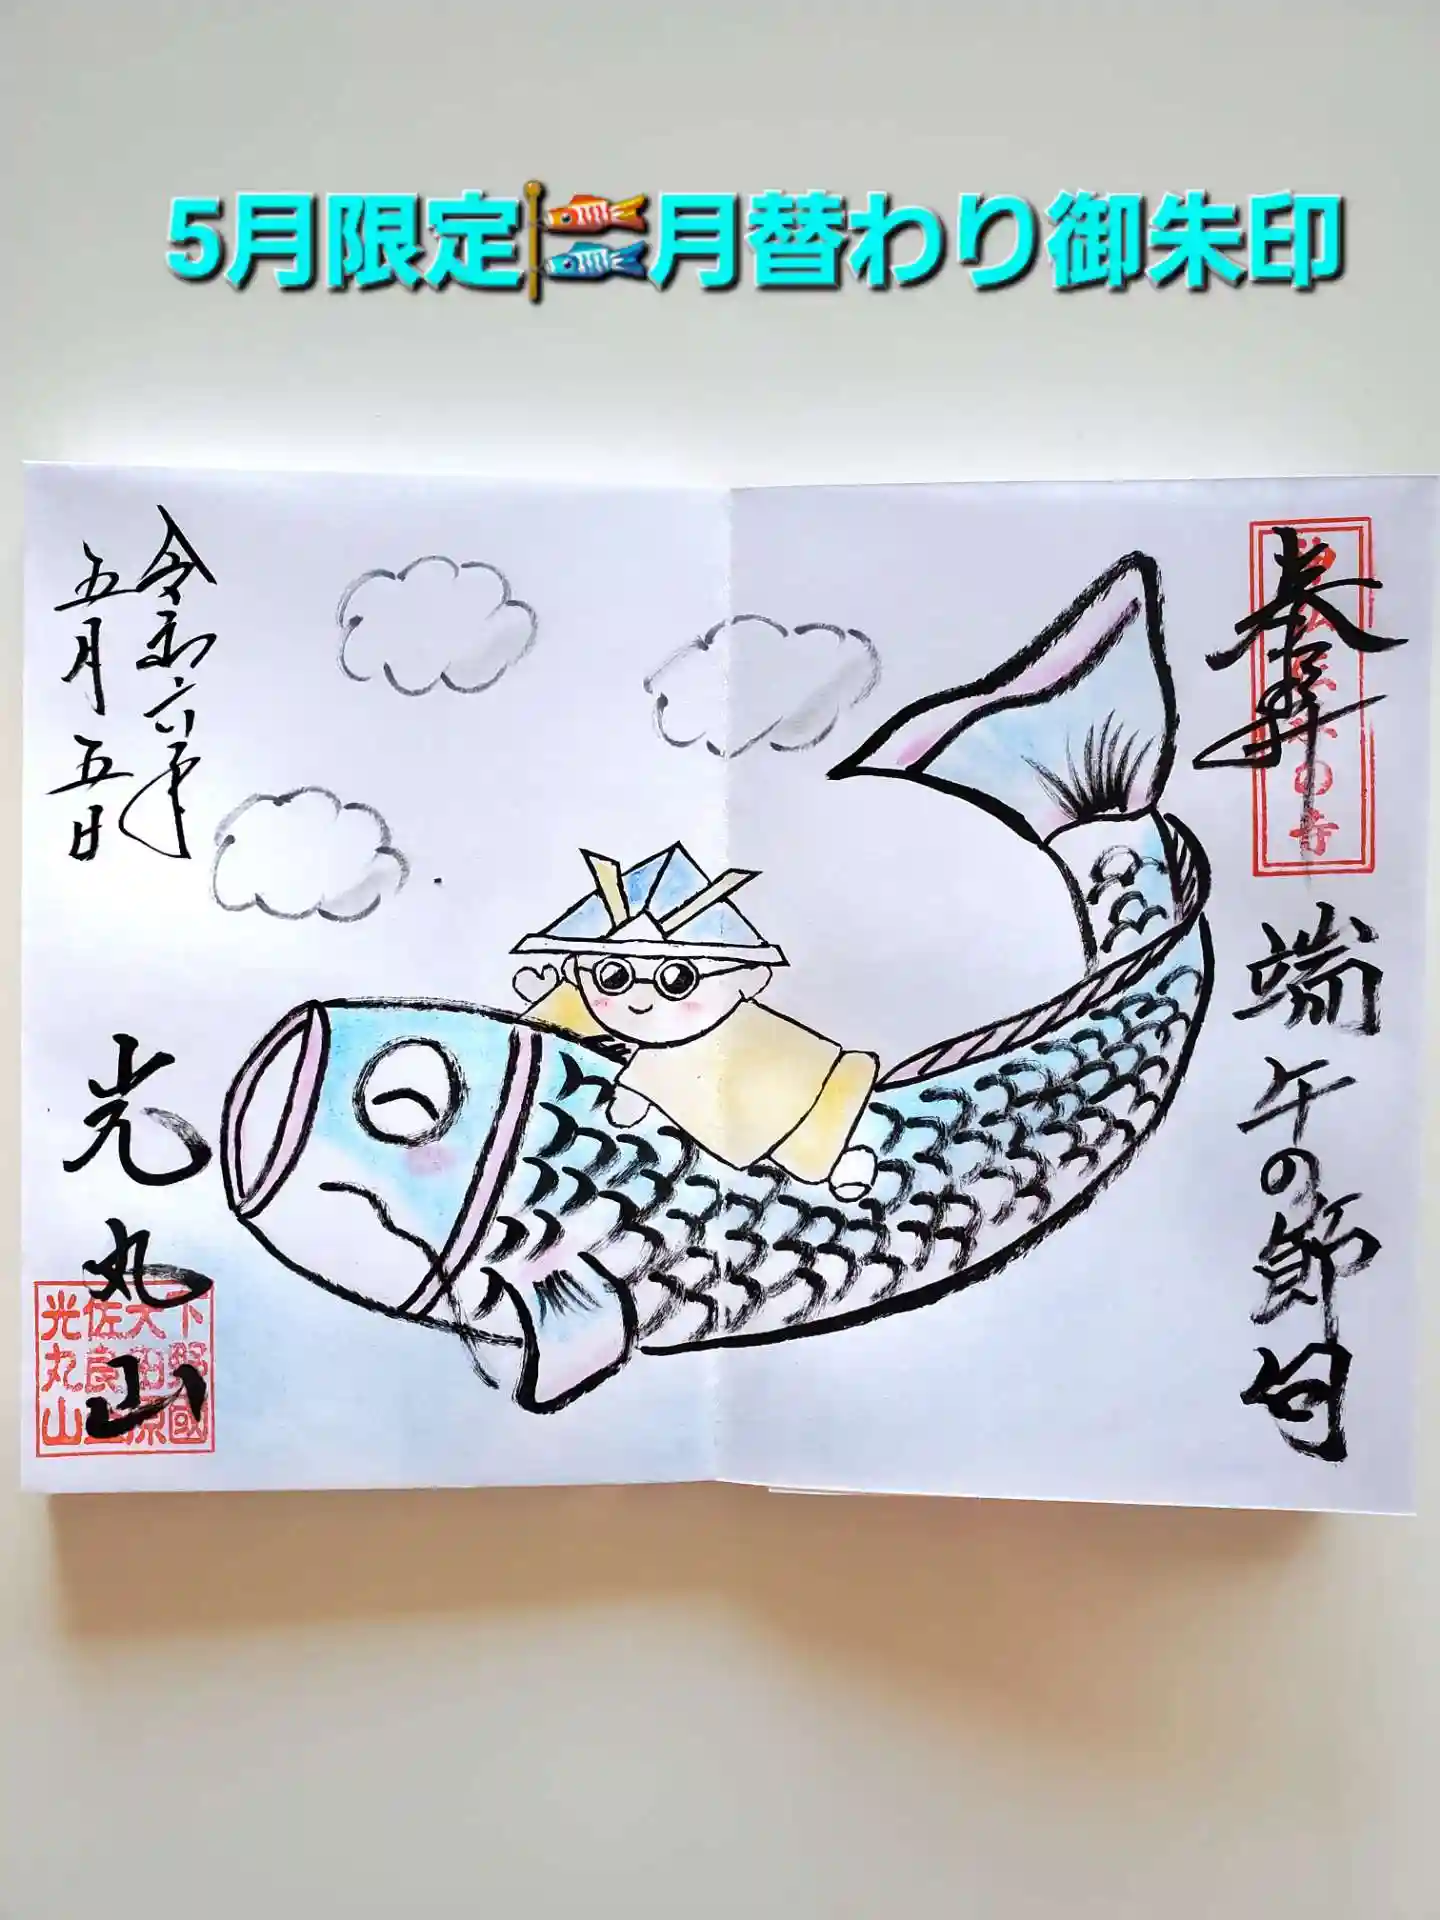 5月限定🎏月替わり御朱印
奉拝
端午の節句
令和六年
五月五日
光丸山
下野國
大田原
佐良土
光丸山